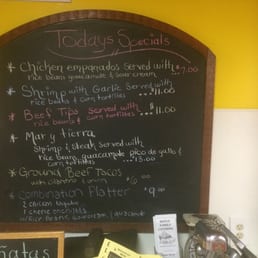 Todays Specials
* Chicken empanadas served with
rice beans guacamole & sour cream ...$7.00
* Shrimp with Garlic Served with
rice beans & corn tortillas ...$11.00
* Beef Tips served with
rice beans & corn tortillas ...$11.00
* Mar y tierra
Shrimp & steak served with
rice beans, guacamole pico de gallo &
corn tortillas ...$13.00
* Ground Beef Tacos
with cilantro & onion $6.00
* Combination Platter $9.00
2 chicken
1 cheese enchilada